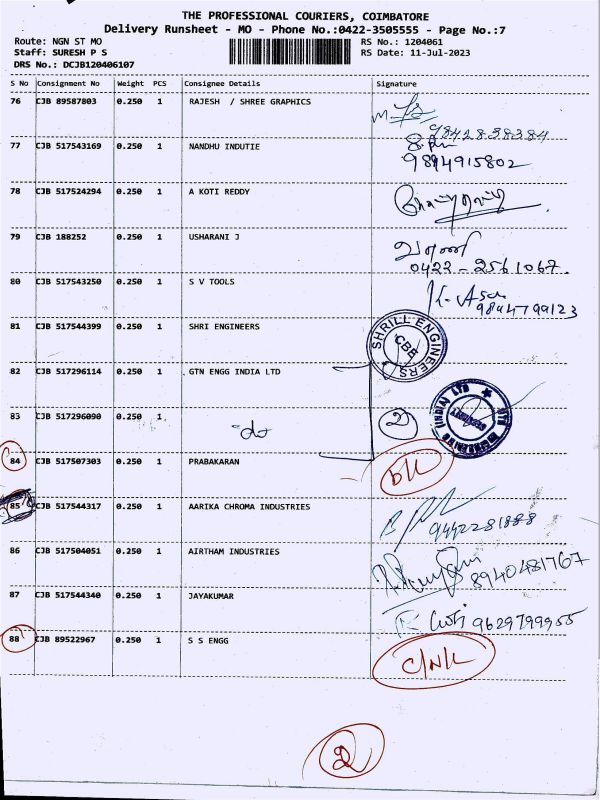 THE PROFESSIONAL COURIERS, COIMBATORE
Delivery Runsheet - MO - Phone No.:0422-3505555 - Page No.:7
Route: NGN ST MO RS No.: 1204061
Staff: SURESH P S RS Date: 11-Jul-2023
DRS No.: DCJB120406107
S No Consignment No Weight PCS Consignee Details Signature
76 CJB 89587803 0.250 1 RAJESH / SHREE GRAPHICS
9842858384
77 CJB 517543169 0.250 1 NANDHU INDUTIE
9894915802
78 CJB 517524294 0.250 1 A KOTI REDDY
79 CJB 188252 0.250 1 USHARANI J
0422-2561067
80 CJB 517543250 0.250 1 S V TOOLS
9894799123
81 CJB 517544399 0.250 1 SHRI ENGINEERS
SHRILL ENGINEERS
CBE
82 CJB 517296114 0.250 1 GTN ENGG INDIA LTD
83 CJB 517296090 0.250 1
do
2
84 CJB 517507303 0.250 1 PRABAKARAN
D/L
85 CJB 517544317 0.250 1 AARIKA CHROMA INDUSTRIES
9442281888
86 CJB 517504051 0.250 1 AIRTHAM INDUSTRIES
8940481767
87 CJB 517544340 0.250 1 JAYAKUMAR
9629799955
88 CJB 89522967 0.250 1 S S ENGG
C/N/L
2